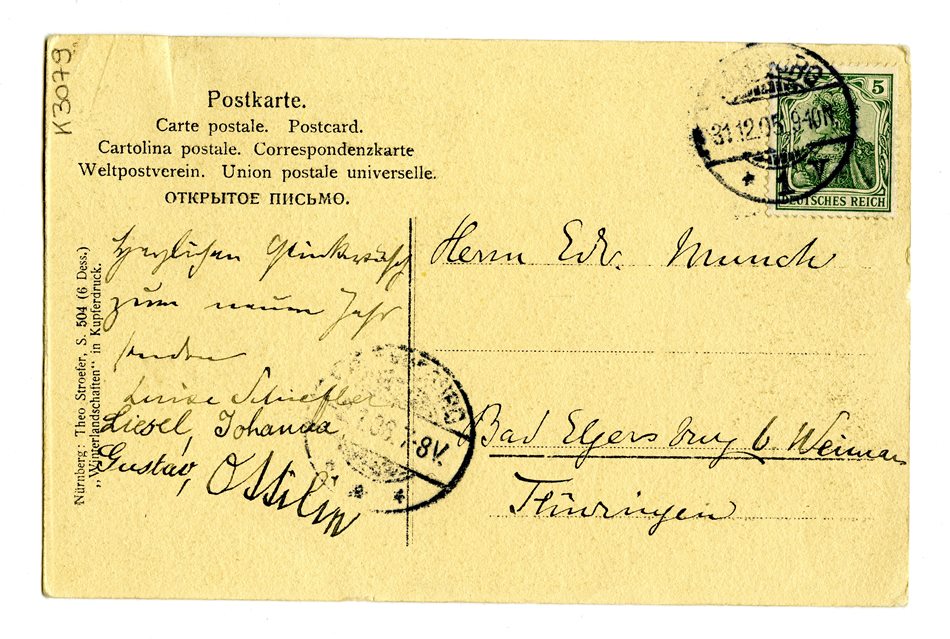 K3079
Postkarte.
Carte postale. Postcard.
Cartolina postale. Correspondenzkarte
Weltpostverein. Union postale universelle.
ОТКРЫТОЕ ПИСЬМО.
Nürnberg: Theo Stroefer, S. 504 (6 Dess.)
„Winterlandschaften" in Kupferdruck.
Herzlichen Glückwunsch
zum neuen Jahr
senden
Luise Schiefler
Liesel, Johanna
Gustav, Ottilie
31.12.05. 9-10N.
1 V
5
DEUTSCHES REICH
Herrn Edv. Munch
Bad Elgersburg b. Weimar
Thüringen
7-8V.